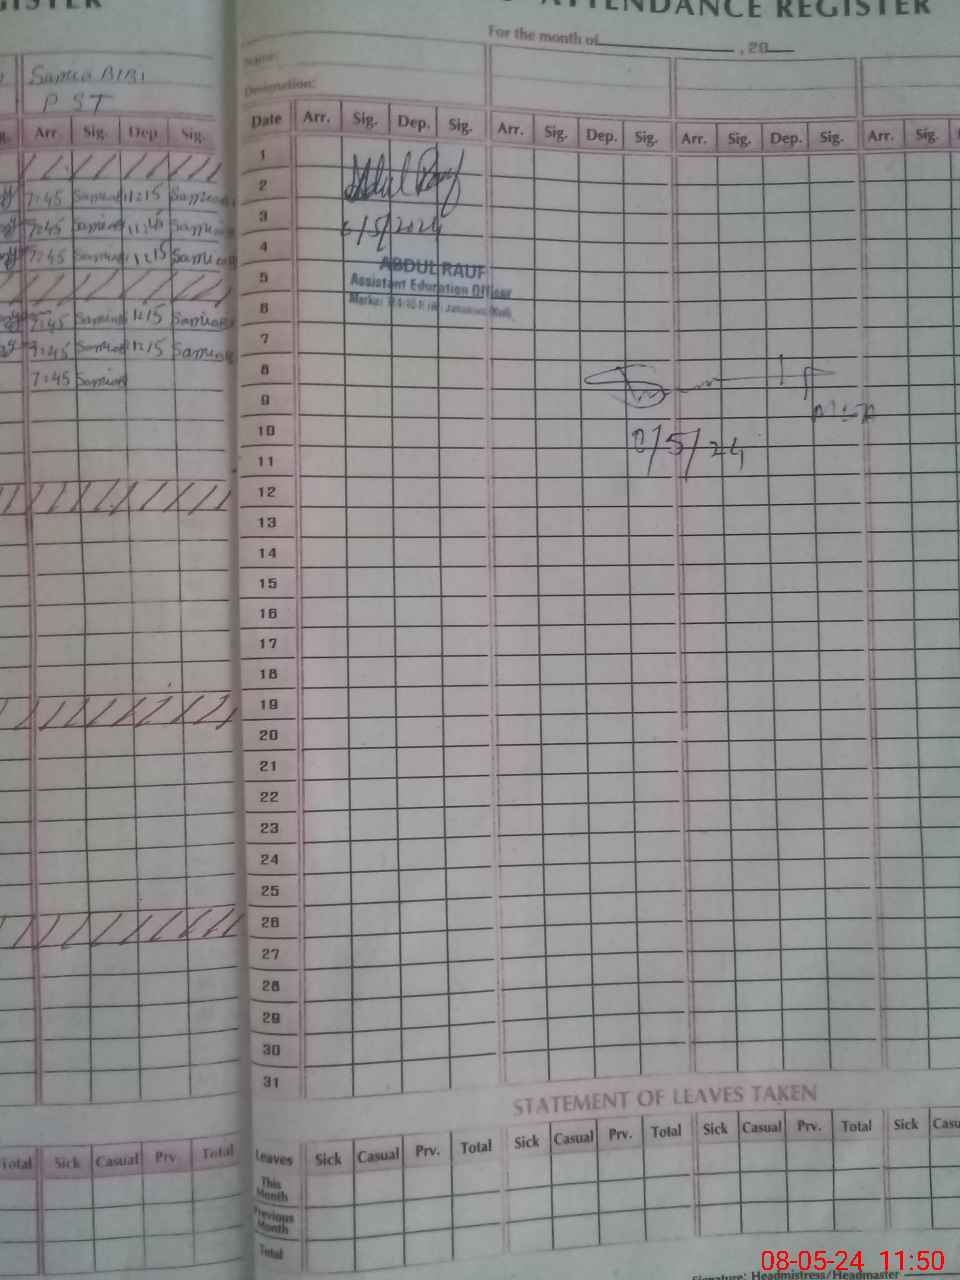 GISTER
ATTENDANCE REGISTER
For the month of , 20
Name:
Designation:
Samia BIBI
PST
Arr. Sig. Dep. Sig.
7:45 Samina 11:15 Samina
7:45 Samina 11:15 Samina
7:45 Samina 11:15 Samina
7:45 Samina 11:15 Samina
7:45 Samina 11:15 Samina
7:45 Samina
Total Sick Casual Prv. Total
Date Arr. Sig. Dep. Sig. Arr. Sig. Dep. Sig. Arr. Sig. Dep. Sig. Arr. Sig.
1
2
3
4
5
6
7
8
9
10
11
12
13
14
15
16
17
18
19
20
21
22
23
24
25
26
27
28
29
30
31
Abdul Rauf
6/5/2024
ABDUL RAUF
Assistant Education Officer
/5/24
STATEMENT OF LEAVES TAKEN
Leaves Sick Casual Prv. Total Sick Casual Prv. Total Sick Casual Prv. Total Sick Casu
This Month
Previous Month
Total
Signature: Headmistress/Headmaster
08-05-24 11:50